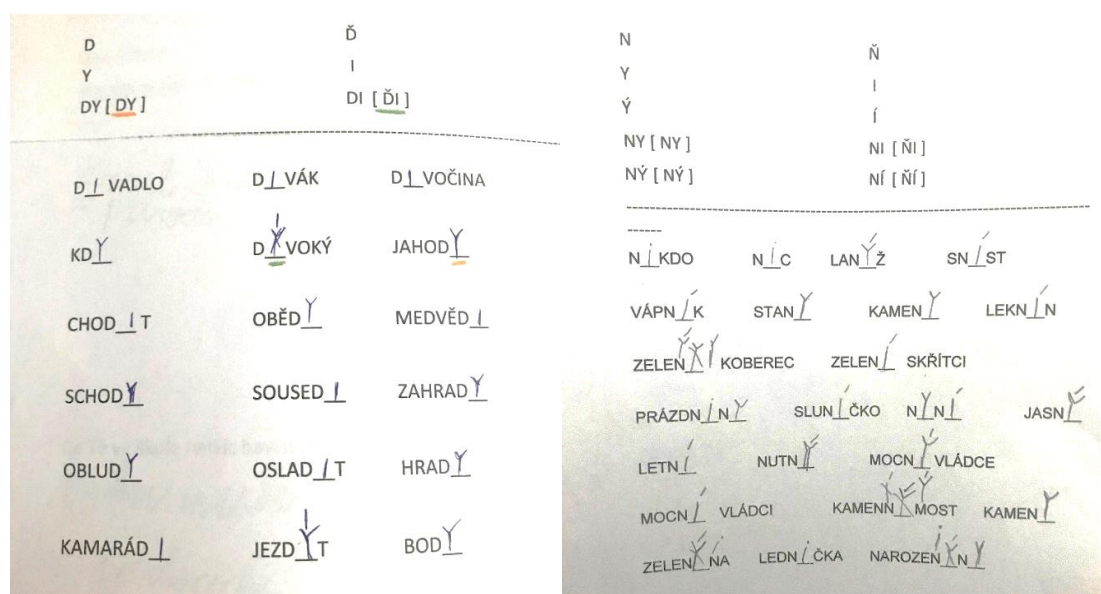 D Ď
Y I
DY [ DY ] DI [ ĎI ]
DIVADLO DIVÁK DIVOČINA
KDY DIVOKÝ JAHODY
CHODIT OBĚDY MEDVĚDI
SCHODY SOUSEDI ZAHRADY
OBLUDY OSLADIT HRADY
KAMARÁDI JEZDIT BODY
N Ň
Y I
Ý Í
NY [ NY ] NI [ ŇI ]
NÝ [ NÝ ] NÍ [ ŇÍ ]
NIKDO NIC LANÝŽ SNÍST
VÁPNÍK STANY KAMENY LEKNÍN
ZELENÝ KOBEREC ZELENÍ SKŘÍTCI
PRÁZDNINY SLUNÍČKO NYNÍ JASNÝ
LETNÍ NUTNÝ MOCNÝ VLÁDCE
MOCNÍ VLÁDCI KAMENNÝ MOST KAMENY
ZELENINA LEDNIČKA NAROZENINY